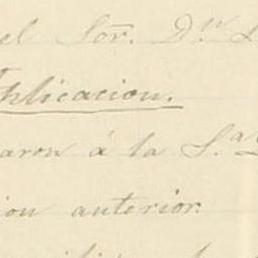 el Sor. Dn
plicacion.
aron á la S.a
ion anterior.